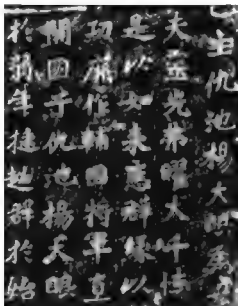 邑主仇池楊大眼為孝
夫靈光弗曜大千懷
是以如來應群緣以
功厥作輔國將軍直
開國子仇池楊大眼
於弱年挺超群於始